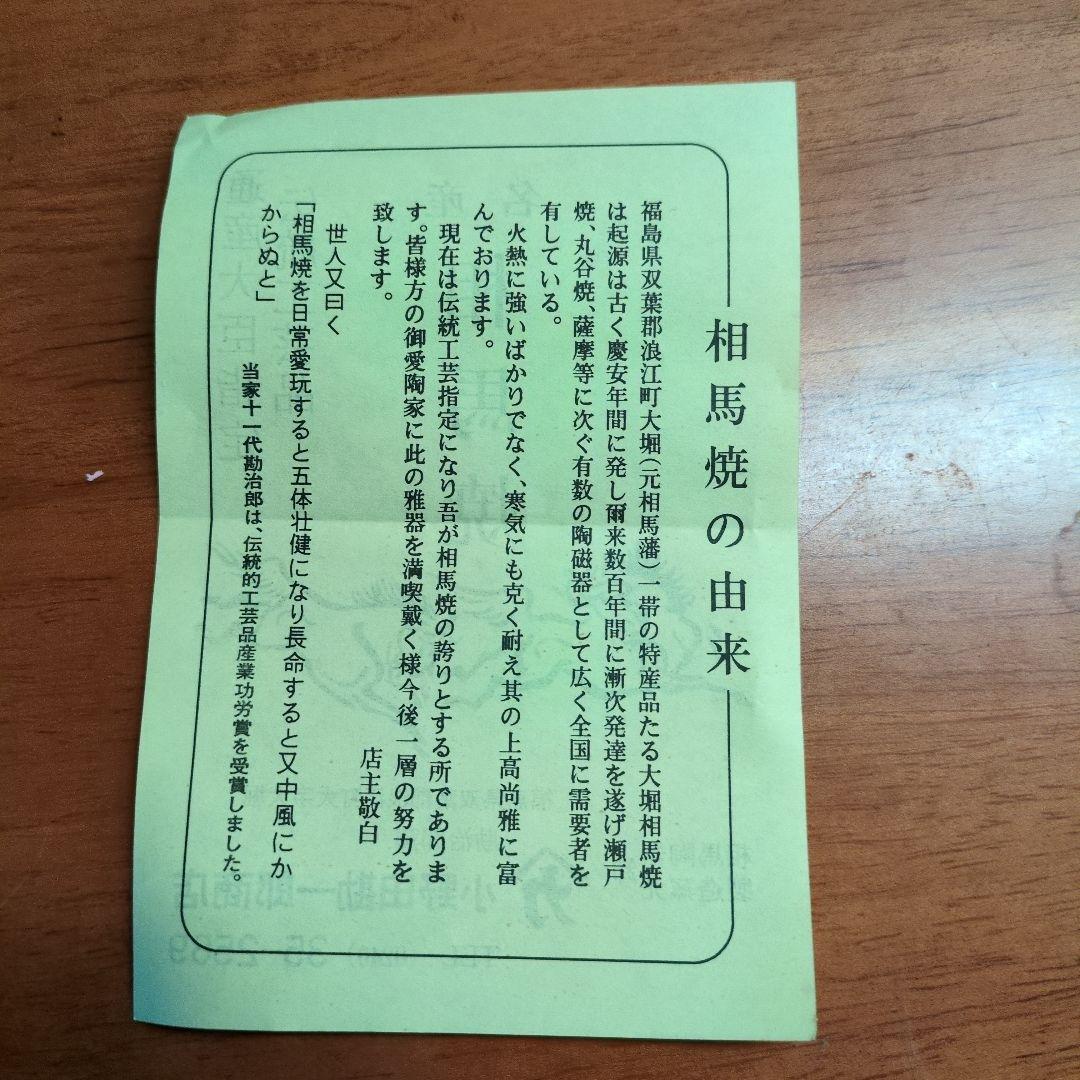 相馬焼の由来
福島県双葉郡浪江町大堀(元相馬藩)一帯の特産品たる大堀相馬焼
は起源は古く慶安年間に発し爾来数百年間に漸次発達を遂げ瀬戸
焼、丸谷焼、薩摩等に次ぐ有数の陶磁器として広く全国に需要者を
有している。
火熱に強いばかりでなく、寒気にも克く耐え其の上高尚雅に富
んでおります。
現在は伝統工芸指定になり吾が相馬焼の誇りとする所でありま
す。皆様方の御愛陶家に此の雅器を満喫戴く様今後一層の努力を
致します。
店主敬白
世人又曰く
「相馬焼を日常愛玩すると五体壮健になり長命すると又中風にか
からぬと」
当家十一代勘治郎は、伝統的工芸品産業功労賞を受賞しました。